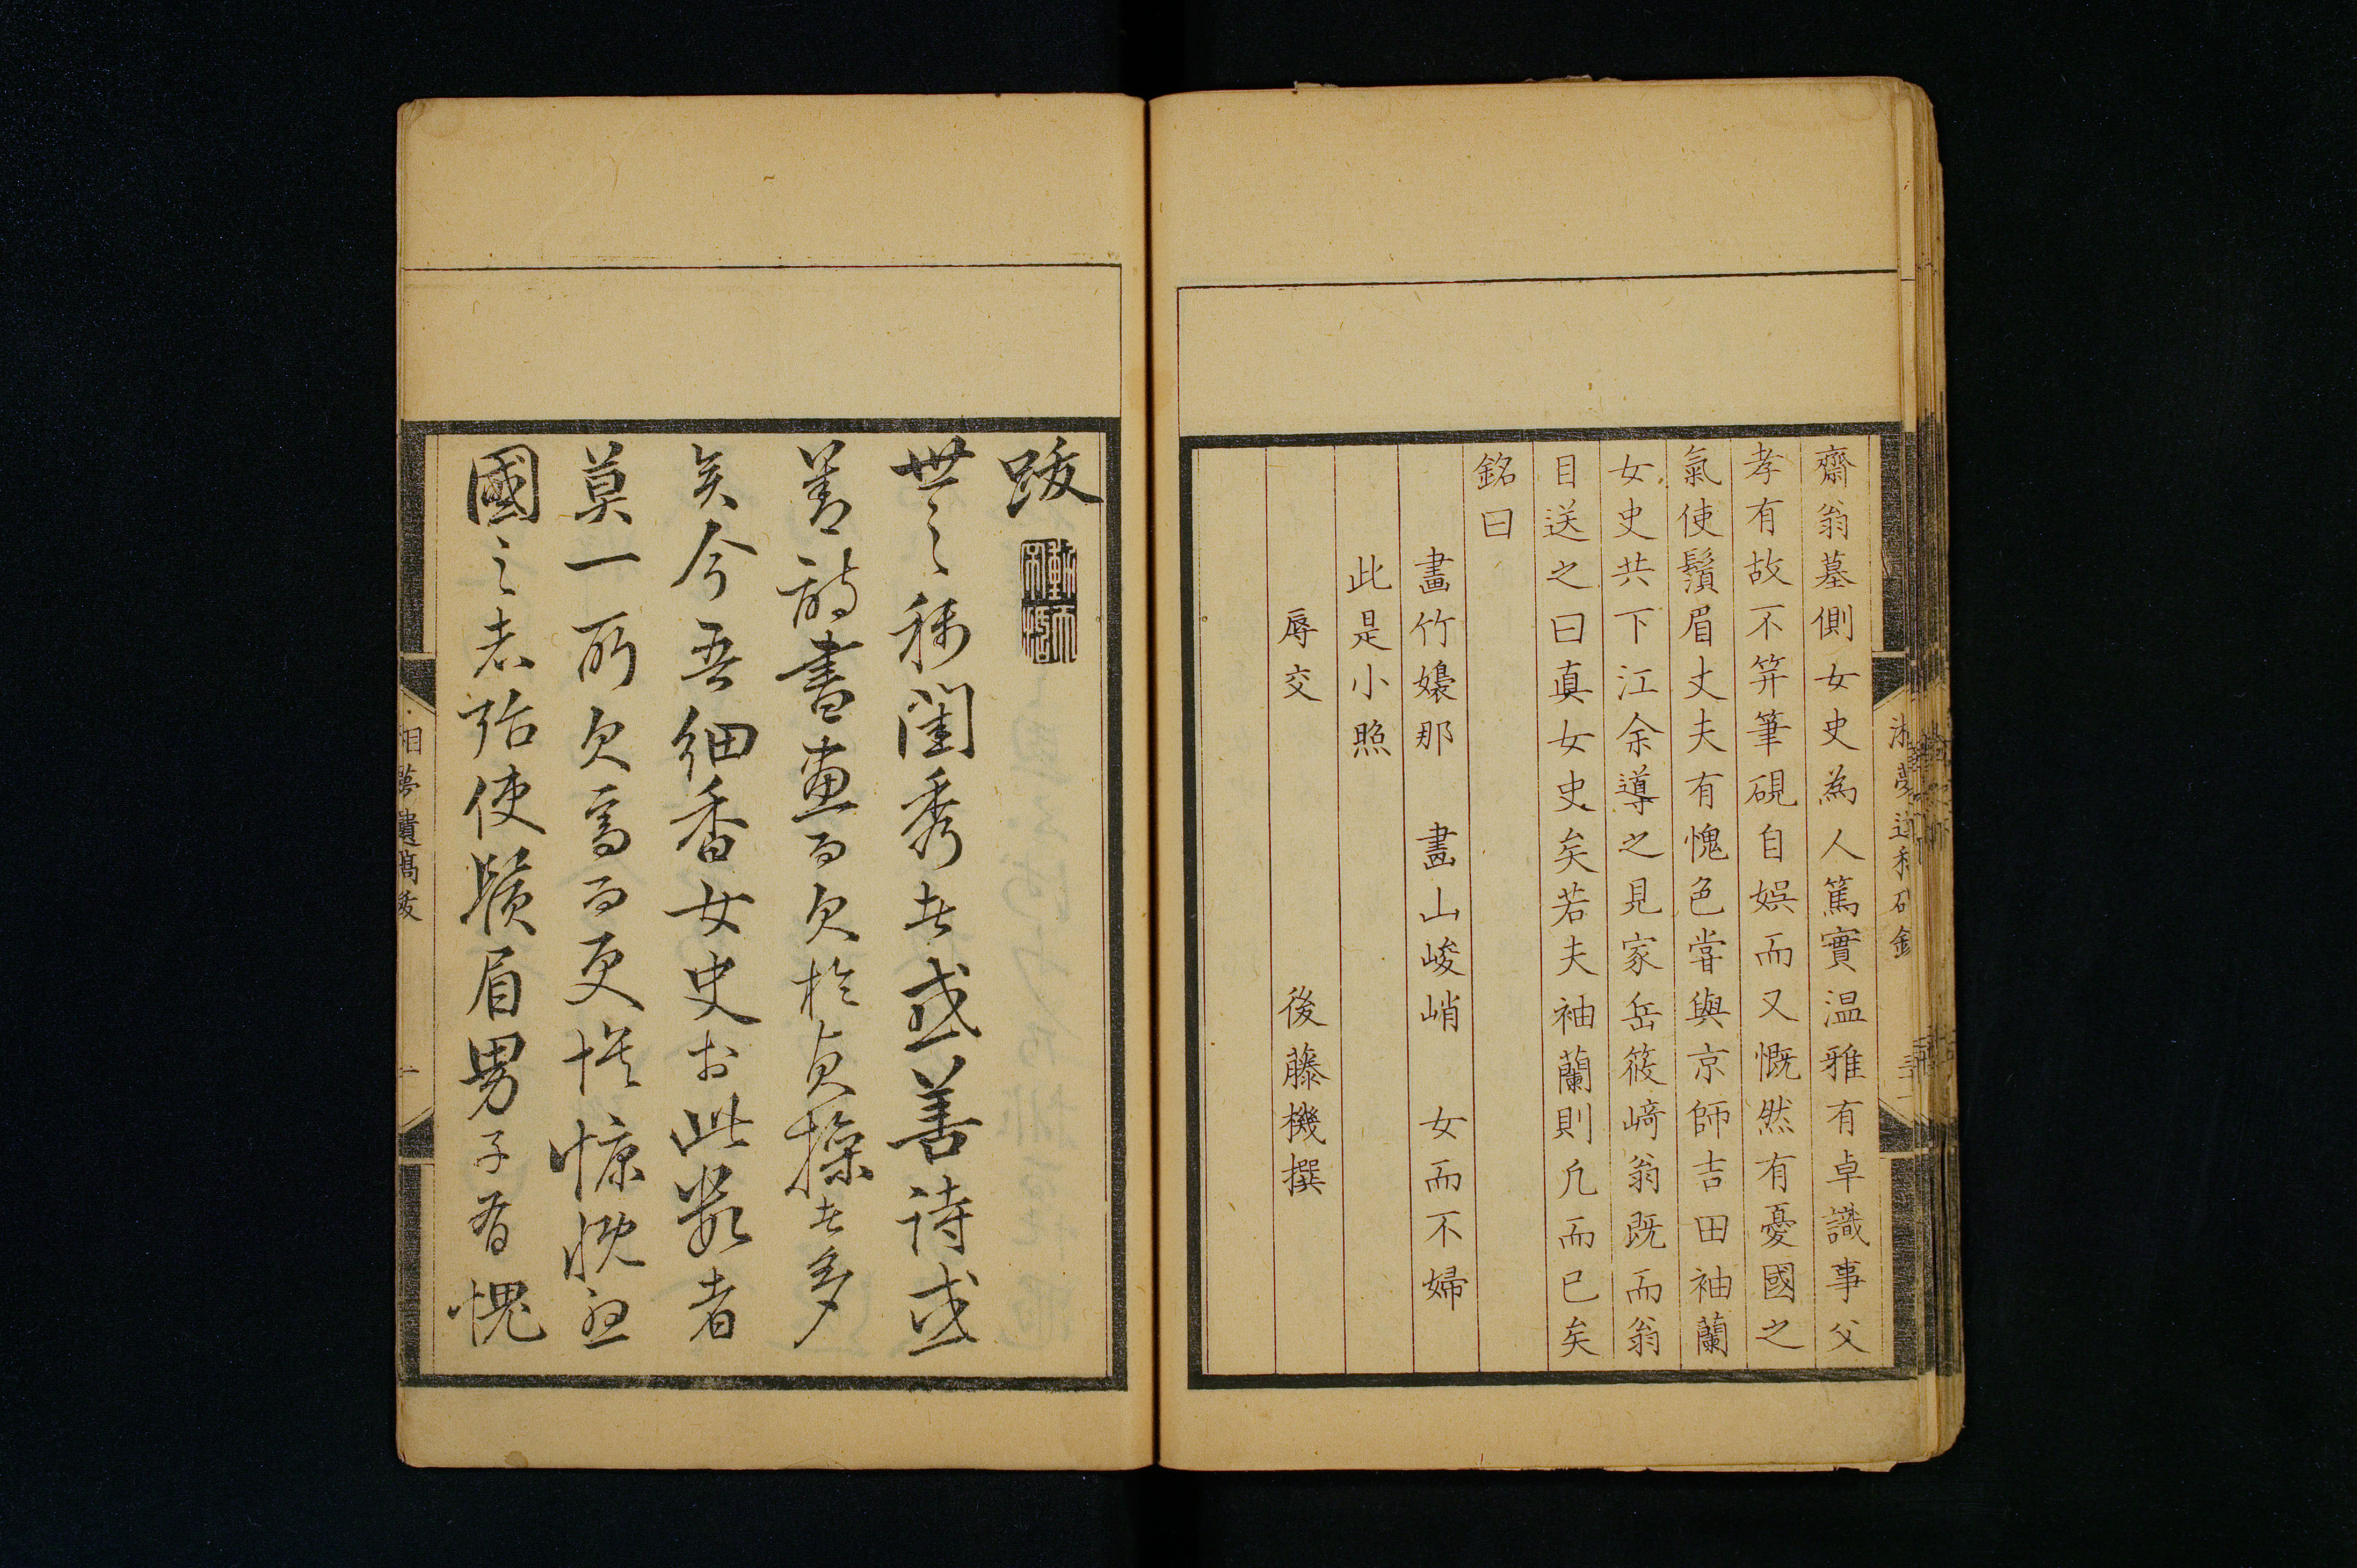 齋翁墓側女史為人篤實温雅有卓識事父
孝有故不笄筆硯自娯而又慨然有憂國之
氣使鬚眉丈夫有愧色嘗與京師吉田袖蘭
女史共下江余導之見家岳筱﨑翁既而翁
目送之曰真女史矣若夫袖蘭則凢而已矣
銘曰
畫竹嬝那　畫山峻峭　女而不婦
此是小照
辱交　後藤機撰
跋
世之稱閨秀者或善詩或
善詩書畫而欠於貞操者多
矣今吾細香女史於此數者
莫一所欠焉而更懐慷慨憂
國之志殆使鬚眉男子有愧
湘夢遺稿跋　一